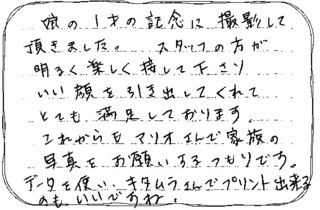 娘の1才の記念に撮影して
頂きました。 スタッフの方が
明るく楽しく接して下さり
いい顔を引き出してくれて
とても満足しております。
これからもマリオさんで家族の
写真をお願いするつもりです。
データを使い、キタムラさんでプリント出来る
のもいいですね。